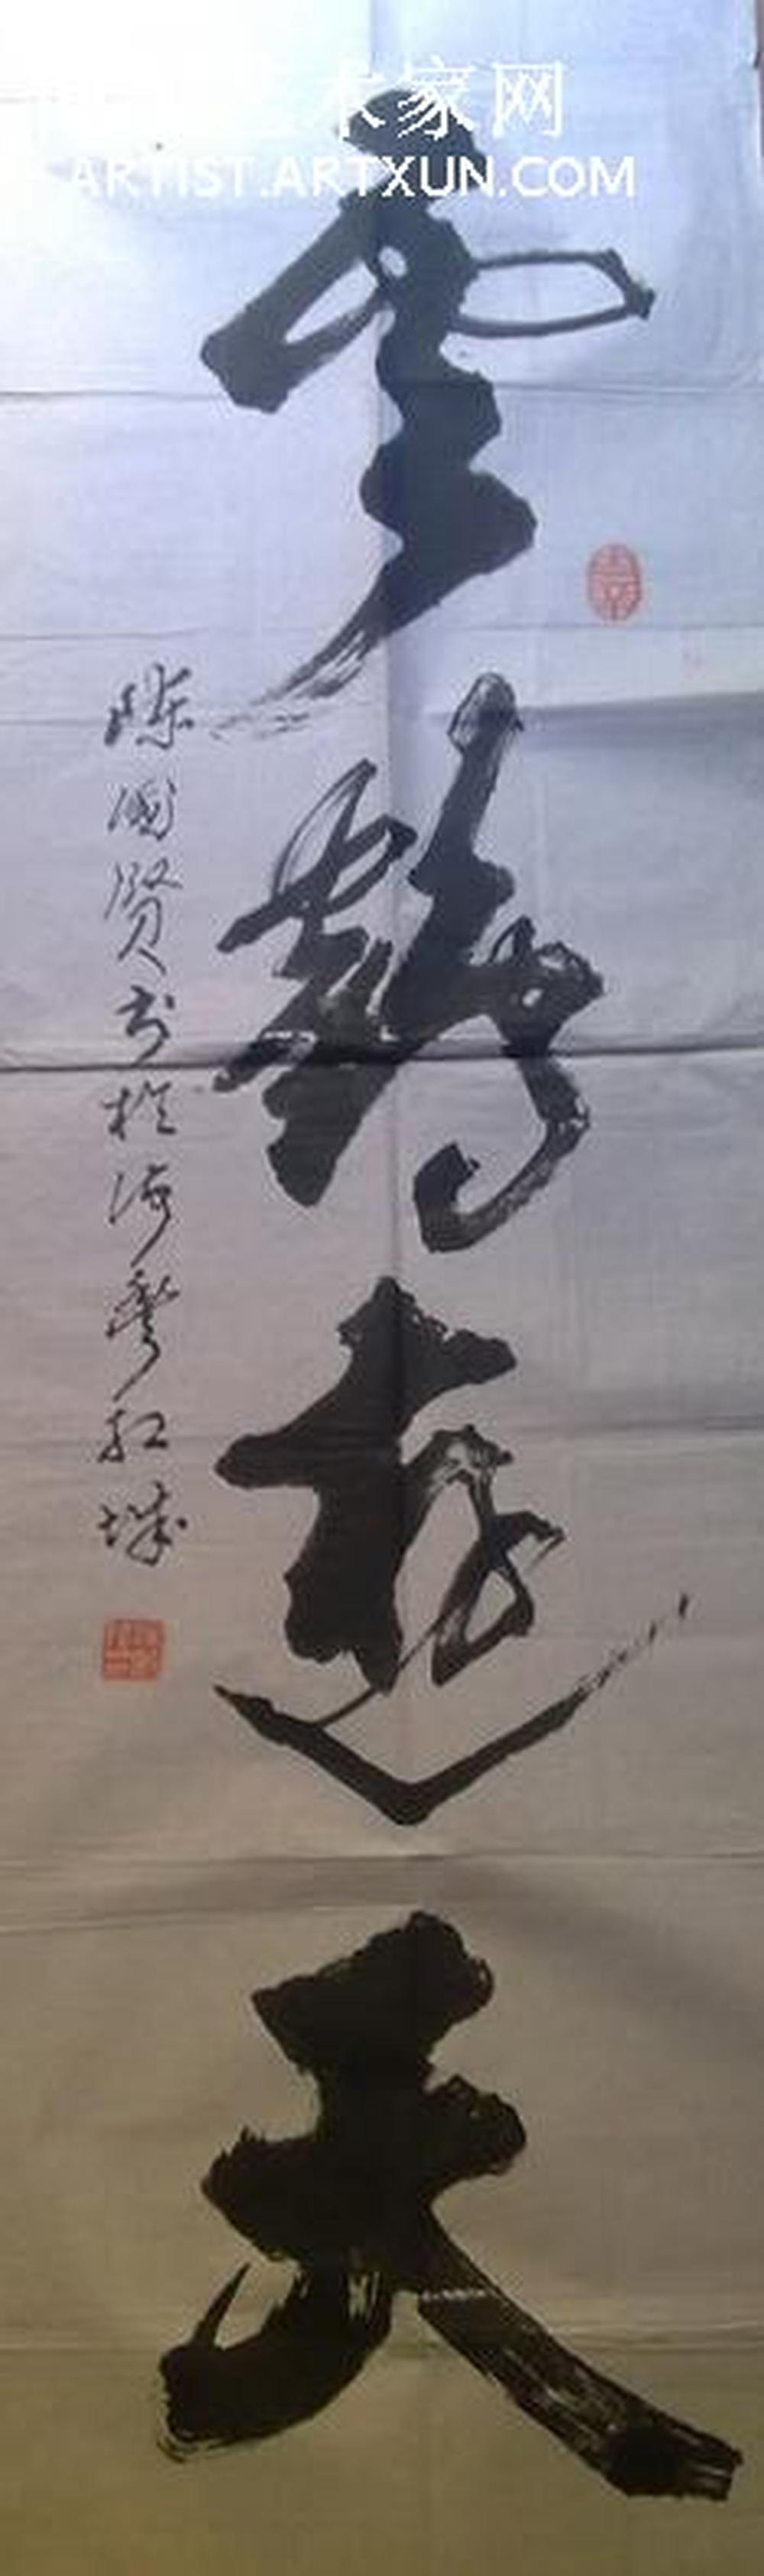 术家网
ARTIST.ARTXUN.COM
云鹤游天
陈国贤书于海丰红城